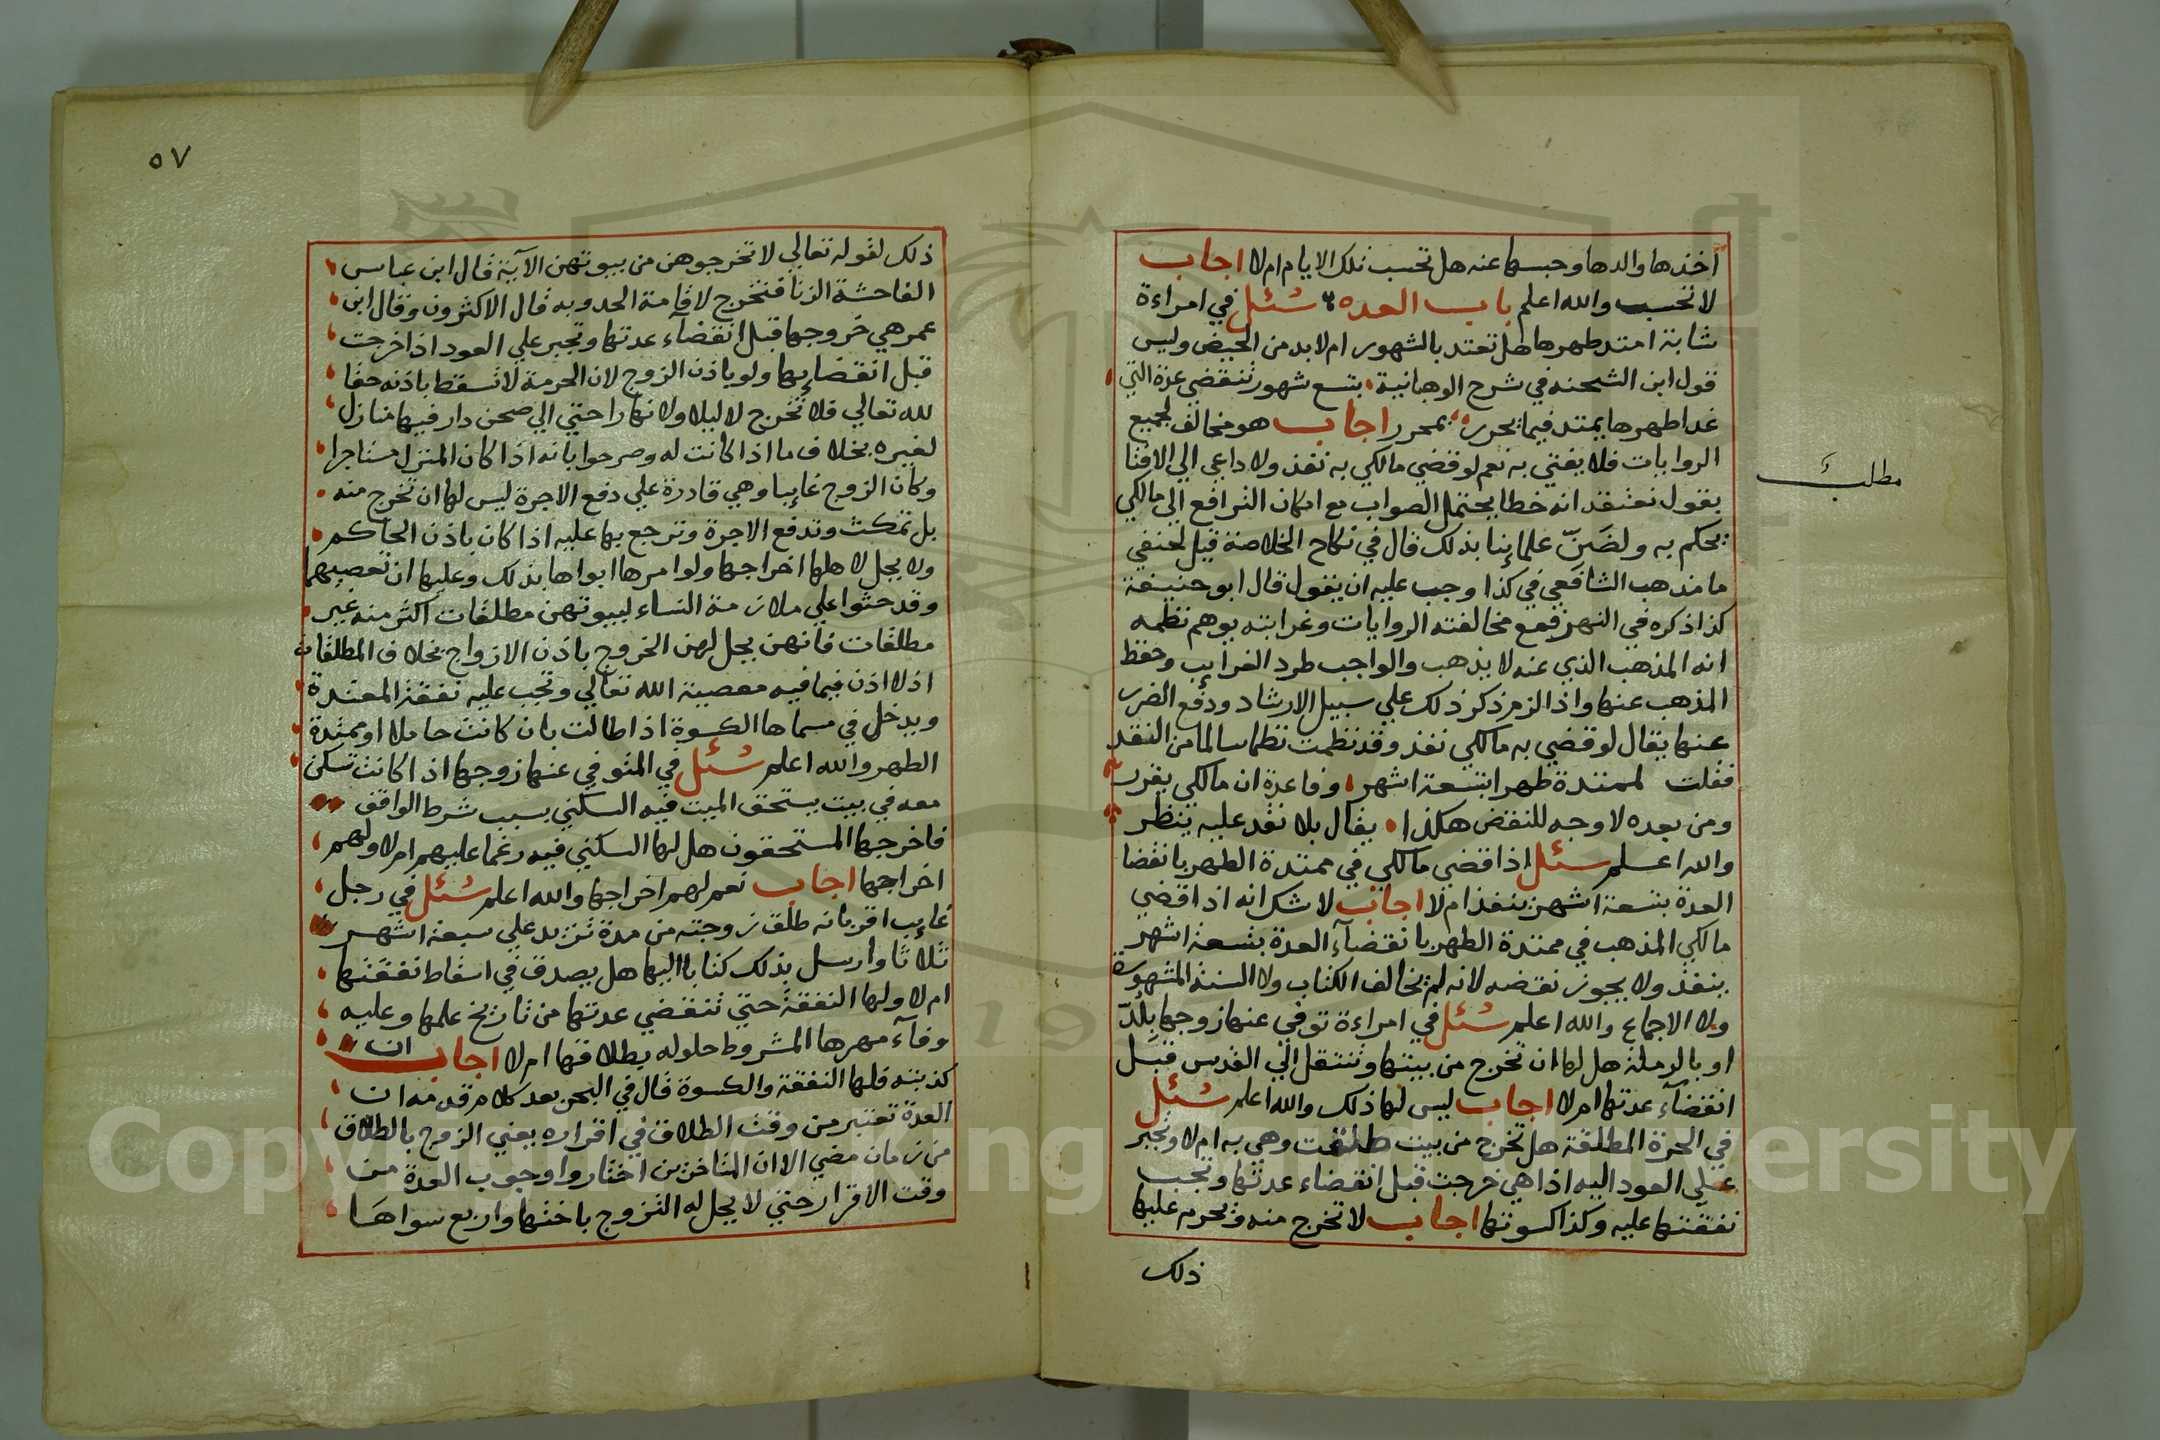 أخذها والدها وحبسها عنه هل تحسب تلك الايام ام لا اجاب
لا تحسب والله اعلم باب العده سئل في امراءة
شابة امتد طهرها هل تعتد بالشهور ام لا بد من الحيض وليس
قول ابن الشحنه في شرح الوهبانية بتسع شهور تنقضي عدة التي
غدا طهرها يمتد فيما يحرر بمحرر اجاب هو مخالف لجميع
الروايات فلا يفتي به نعم لو قضي مالكي به نفذ ولا داعي الي الافتا
بقول نعتقد انه خطا يحتمل الصواب مع امكان الترافع الي مالكي
يحكم به ولضن علماينا بذلك قال في نكاح الخلاصة قيل لحنفي
ما مذهب الشافعي في كذا وجب عليه ان يقول قال ابو حنيفة
كذا ذكره في النهر فمع مخالفته الروايات وغرابته يوهم نظمه
انه المذهب الذي عنه لا يذهب والواجب طرد الغرايب وحفظ
المذهب عنها واذا لزم ذكر ذلك علي سبيل الارشاد ودفع الضرر
عنها يقال لو قضي به مالكي نفذ وقد نظمت نظما سالما من النقد
فقلت لممتدة طهرا بتسعة اشهر وفا عدة ان مالكي يقرر
ومن بعده لا وجه للنقض هكذا يقال بلا نقد عليه ينظر
والله اعلم سئل اذا قضي مالكي في ممتدة الطهر بانقضا
العدة بتسعة اشهر ينفذ ام لا اجاب لا شك انه اذا قضي
مالكي المذهب في ممتدة الطهر بانقضآء العدة بتسعة اشهر
ينفذ ولا يجوز نقضه لانه لم يخالف الكتاب ولا السنة المشهورة
ولا الاجماع والله اعلم سئل في امراءة توفي عنها زوجها بلد
او بالرملة هل لها ان تخرج من بيتها وتنتقل الي القدس قبل
انقضآء عدتها ام لا اجاب ليس لها ذلك والله اعلم سئل
في الحرة المطلقة هل تخرج من بيت طلقت وهي به ام لا وتجبر
علي العود اليه اذا هي خرجت قبل انقضاء عدتها وتجب
نفقتها عليه وكذا كسوتها اجاب لا تخرج منه ويحرم عليها
ذلك
مطلب
٥٧
ذلك لقوله تعالي لا تخرجوهن من بيوتهن الآية قال ابن عباس
الفاحشة الزنا فتخرج لاقامة الحد وبه قال الاكثرون وقال ابن
عمر هي خروجها قبل انقضآء عدتها وتجبر علي العود اذا خرجت
قبل انقضايها ولو باذن الزوج لان الحرمة لا تسقط باذنه حقا
لله تعالي فلا تخرج لا ليلا ولا نهارا حتي الي صحن دار فيها منازل
لغيره بخلاف ما اذا كانت له وصرحوا بانه اذا كان المنزل مستاجرا
وكان الزوج غايبا وهي قادرة علي دفع الاجرة ليس لها ان تخرج منه
بل تمكث وتدفع الاجرة وترجع بها عليه اذا كان باذن الحاكم
ولا يحل لاهلها اخراجها ولو امرها ابواها بذلك وعليها ان تعصيهما
وقد حثوا علي ملازمة النساء لبيوتهن مطلقات اكثر منه غير
مطلقات فانهن يحل لهن الخروج باذن الازواج بخلاف المطلقات
اذ لا اذن فيما فيه معصية الله تعالي وتجب عليه نفقة المعتدة
ويدخل في مسماها الكسوة اذا طالت بان كانت حاملا او ممتدة
الطهر والله اعلم سئل في المتوفي عنها زوجها اذا كانت تسكن
معه في بيت يستحق الميت فيه السكني بسبب شرط الواقف
فاخرجها المستحقون هل لها السكني فيه رغما عليهم ام لا ولهم
اخراجها اجاب نعم لهم اخراجها والله اعلم سئل في رجل
غايب اقر بانه طلق زوجته من مدة تزيد علي سبعة اشهر
ثلاثا وارسل بذلك كتابا اليها هل يصدق في اسقاط نفقتها
ام لا ولها النفقة حتي تنقضي عدتها من تاريخ علمها وعليه
وفآء مهرها المشروط حلوله بطلاقها ام لا اجاب ان
كذبته فلها النفقة والكسوة قال في البحر بعد كلام قدمه ان
العدة تعتبر من وقت الطلاق في اقراره يعني الزوج بالطلاق
من زمان مضي الا ان المتاخرين اختاروا وجوب العدة من
وقت الاقرار حتي لا يحل له التزوج باختها واربع سواها
Copyright © King Saud University